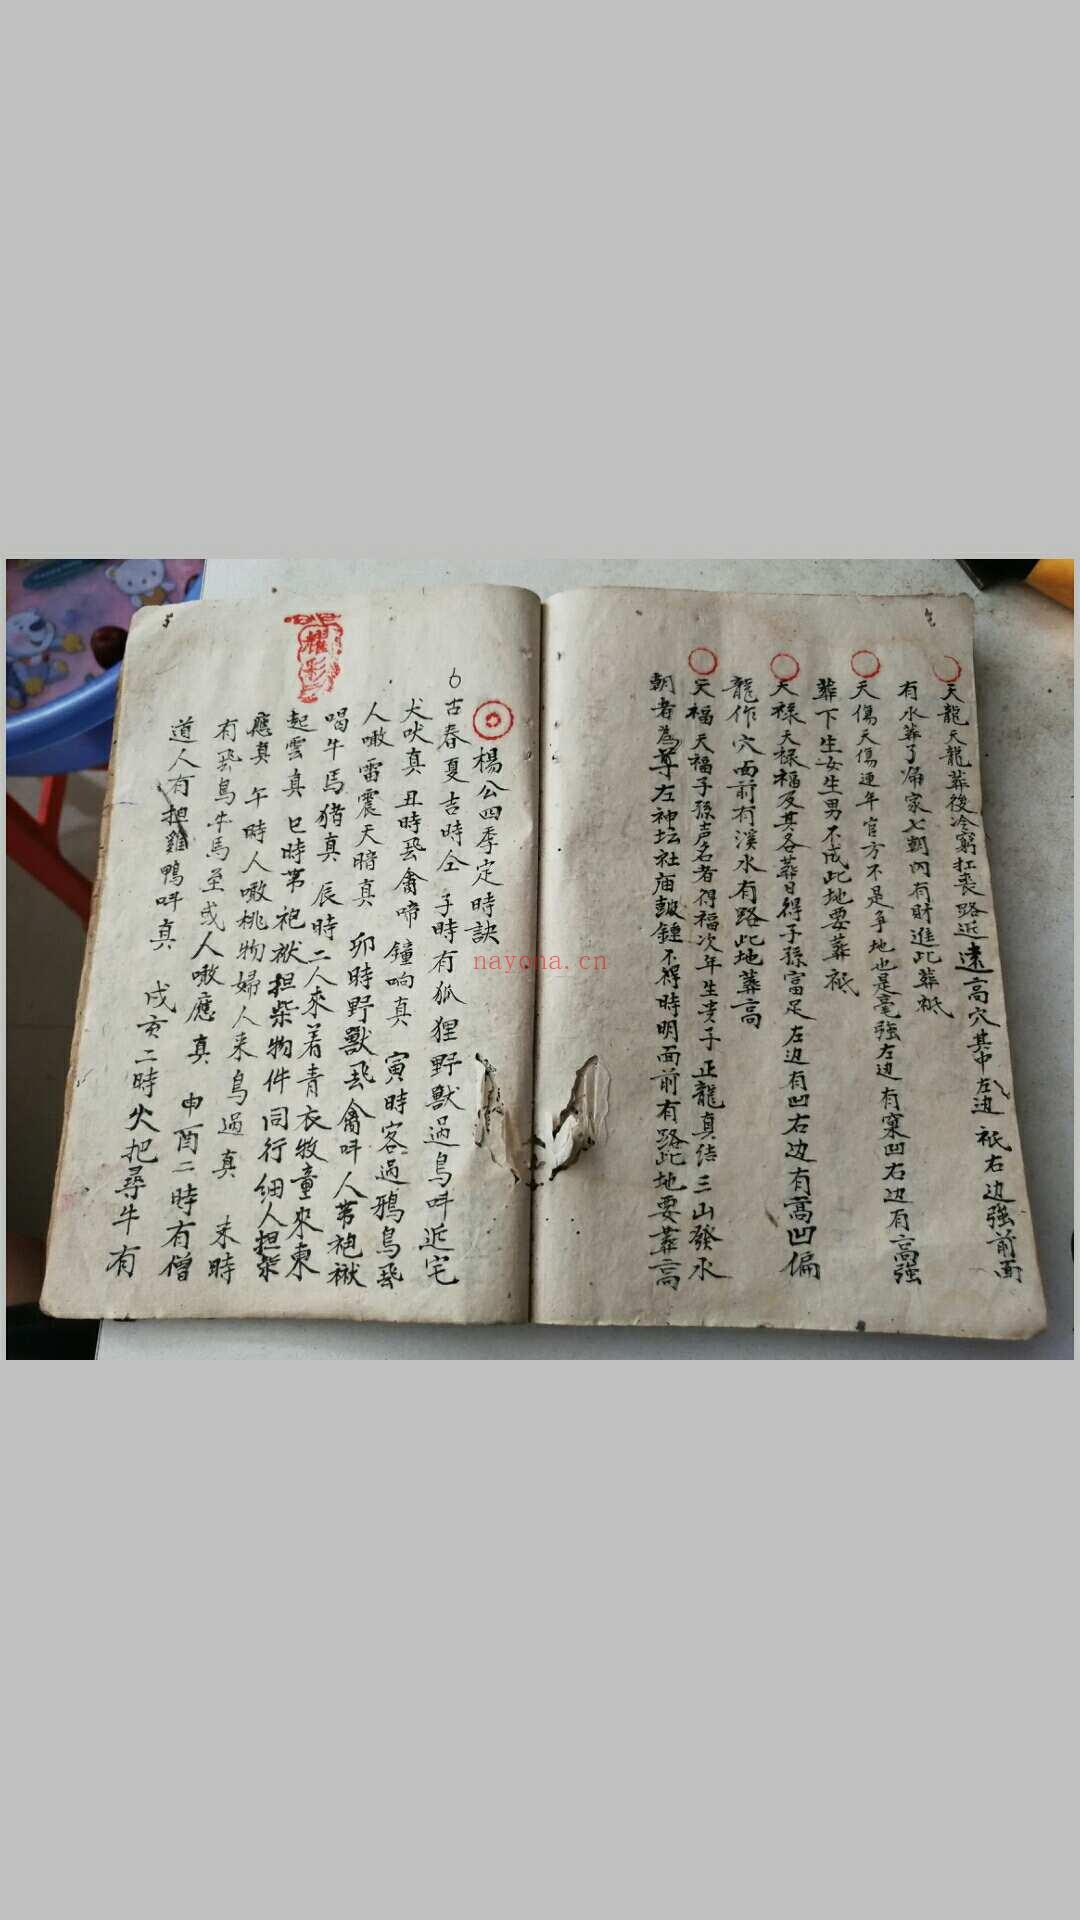 天龍天龍葬後冷窮扛喪路近遠高穴其中左边祇右边強前面
有水葬了屌家七朝內有財進此葬祇
天傷天傷連年官方不是争地也是毫強左边有窠凹右边有高強
葬下生女生男不成此地要葬祇
天祿天祿福及其各葬日得子孫富足左边有凹右边有高凹偏
龍作穴面前有溪水有路此地葬高
天福天福子孫声名者得福次年生贵子正龍真结三山發水
朝者為尊左神坛社庙皷鍾不得時明面前有路此地要葬高
楊公四季定時訣
6古春夏吉時仝 子時有狐狸野獸過鳥呌近宅
犬吠真 丑時飛禽啼鐘响真 寅時客過鴉鳥飛
人噉雷震天暗真 卯時野獸飛禽呌人着袍袱
喝牛馬猪真 辰時二人來着青衣牧童來東
起雲真 巳時着袍袱担柴物件同行细人担柴
應真 午時人噉桃物婦人来鳥過真 未時
有飛鳥牛馬至或人噉應真 申酉二時有僧
道人有担雞鴨呌真 戌亥二時火把尋牛有
耀彩
nayona.cn